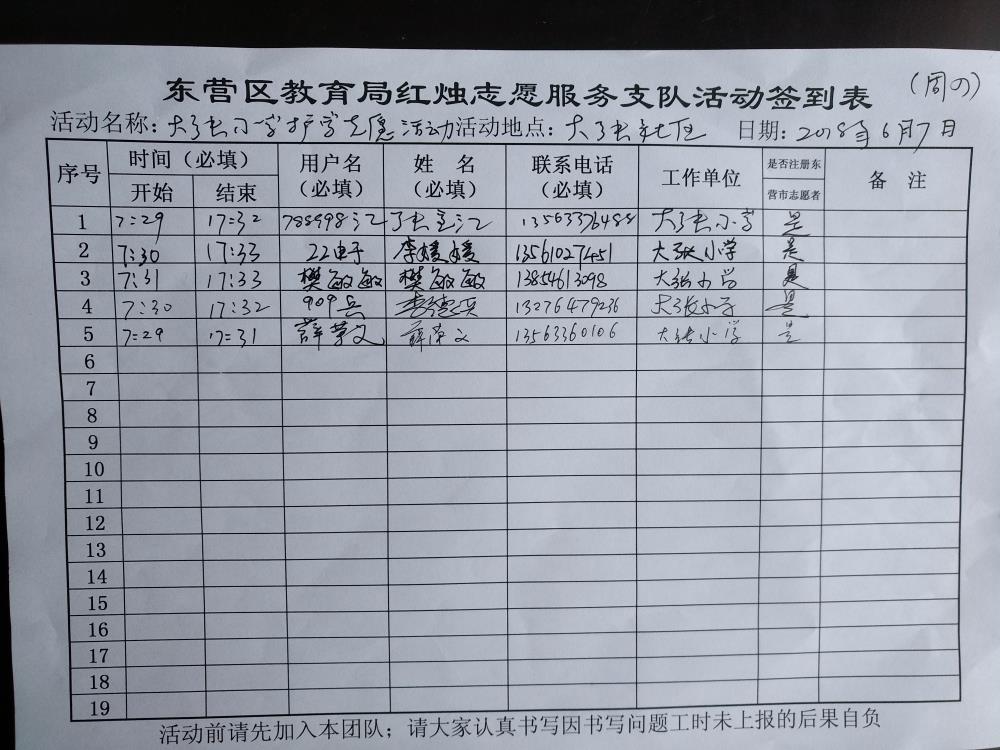 (周四)
东营区教育局红烛志愿服务支队活动签到表
活动名称：大张小学护学志愿活动 活动地点：大张社区 日期：2018年6月7日
序号 时间（必填） 用户名（必填） 姓 名（必填） 联系电话（必填） 工作单位 是否注册东营市志愿者 备 注
开始 结束
1 7:29 17:32 788898江 张 江 13563376488 大张小学 是
2 7:30 17:33 22电子 李媛媛 13561027451 大张小学 是
3 7:31 17:33 樊敏敏 樊敏敏 13854613098 大张小学 是
4 7:30 17:32 909兵 李德兵 13276479236 大张小学 是
5 7:29 17:31 薛荣文 薛荣文 13563360106 大张小学 是
6
7
8
9
10
11
12
13
14
15
16
17
18
19
活动前请先加入本团队；请大家认真书写因书写问题工时未上报的后果自负